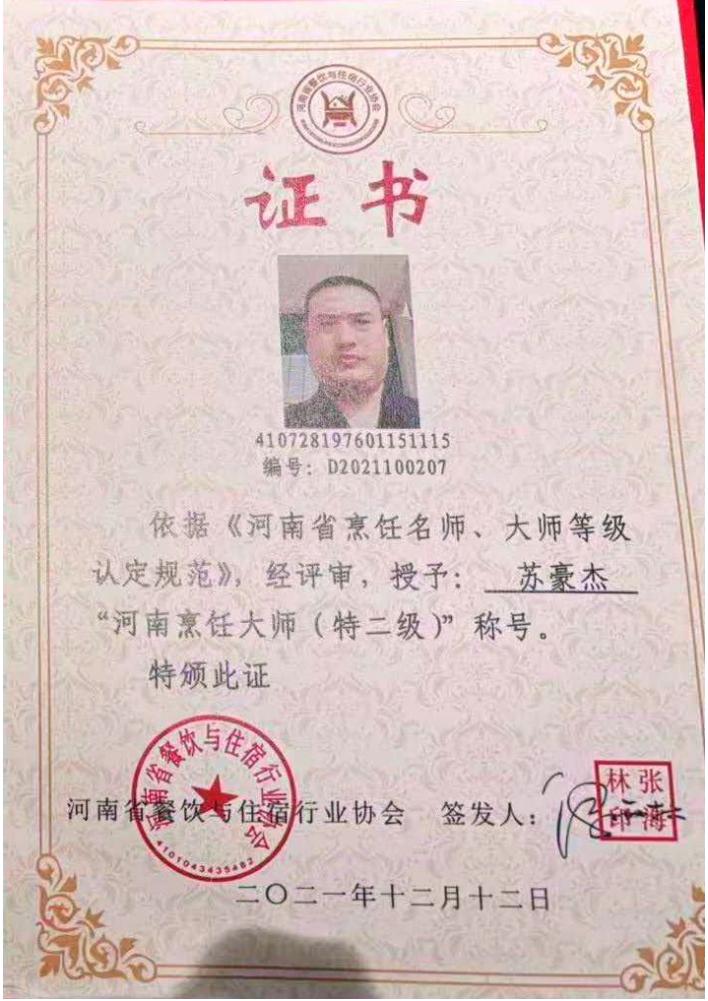 河南省餐饮与住宿行业协会
证书
410728197601151115
编号：D2021100207
依据《河南省烹饪名师、大师等级
认定规范》，经评审，授予： 苏豪杰
“河南烹饪大师（特二级）”称号。
特颁此证
河南省餐饮与住宿行业协会
4101043435482
河南省餐饮与住宿行业协会 签发人：
张海
林印
二〇二一年十二月十二日